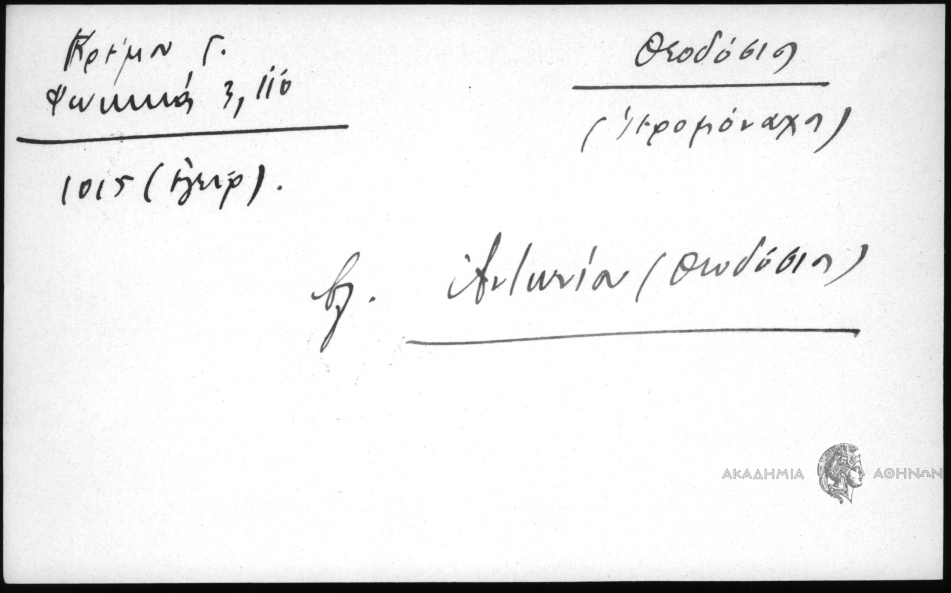 Κρέμου Γ.
Φωκικά 3, 110
1015 (χειρ).
Θεοδόσιος
(Ἱερομόναχος)
βλ. Ἀντωνίου (Θεοδόσιος)
ΑΚΑΔΗΜΙΑ ΑΘΗΝΩΝ